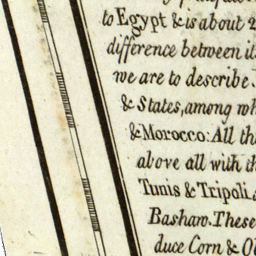 to Egypt & is about
difference between
we are to describe
& States, among
& Morocco: All
above all with
Tunis & Tripoli
Bashaw. These
duce Corn &